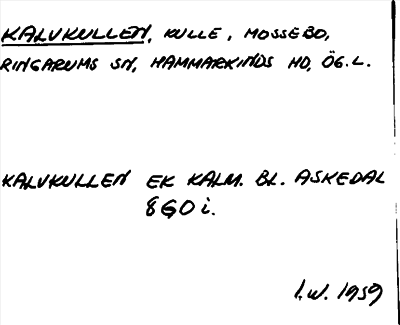 KALVKULLEN, KULLE, MOSSEBO,
RINGARUMS SN, HAMMARKINDS HD, ÖG.L.
KALVKULLEN EK KALM. BL. ASKEDAL
8GO i.
I.W. 1959